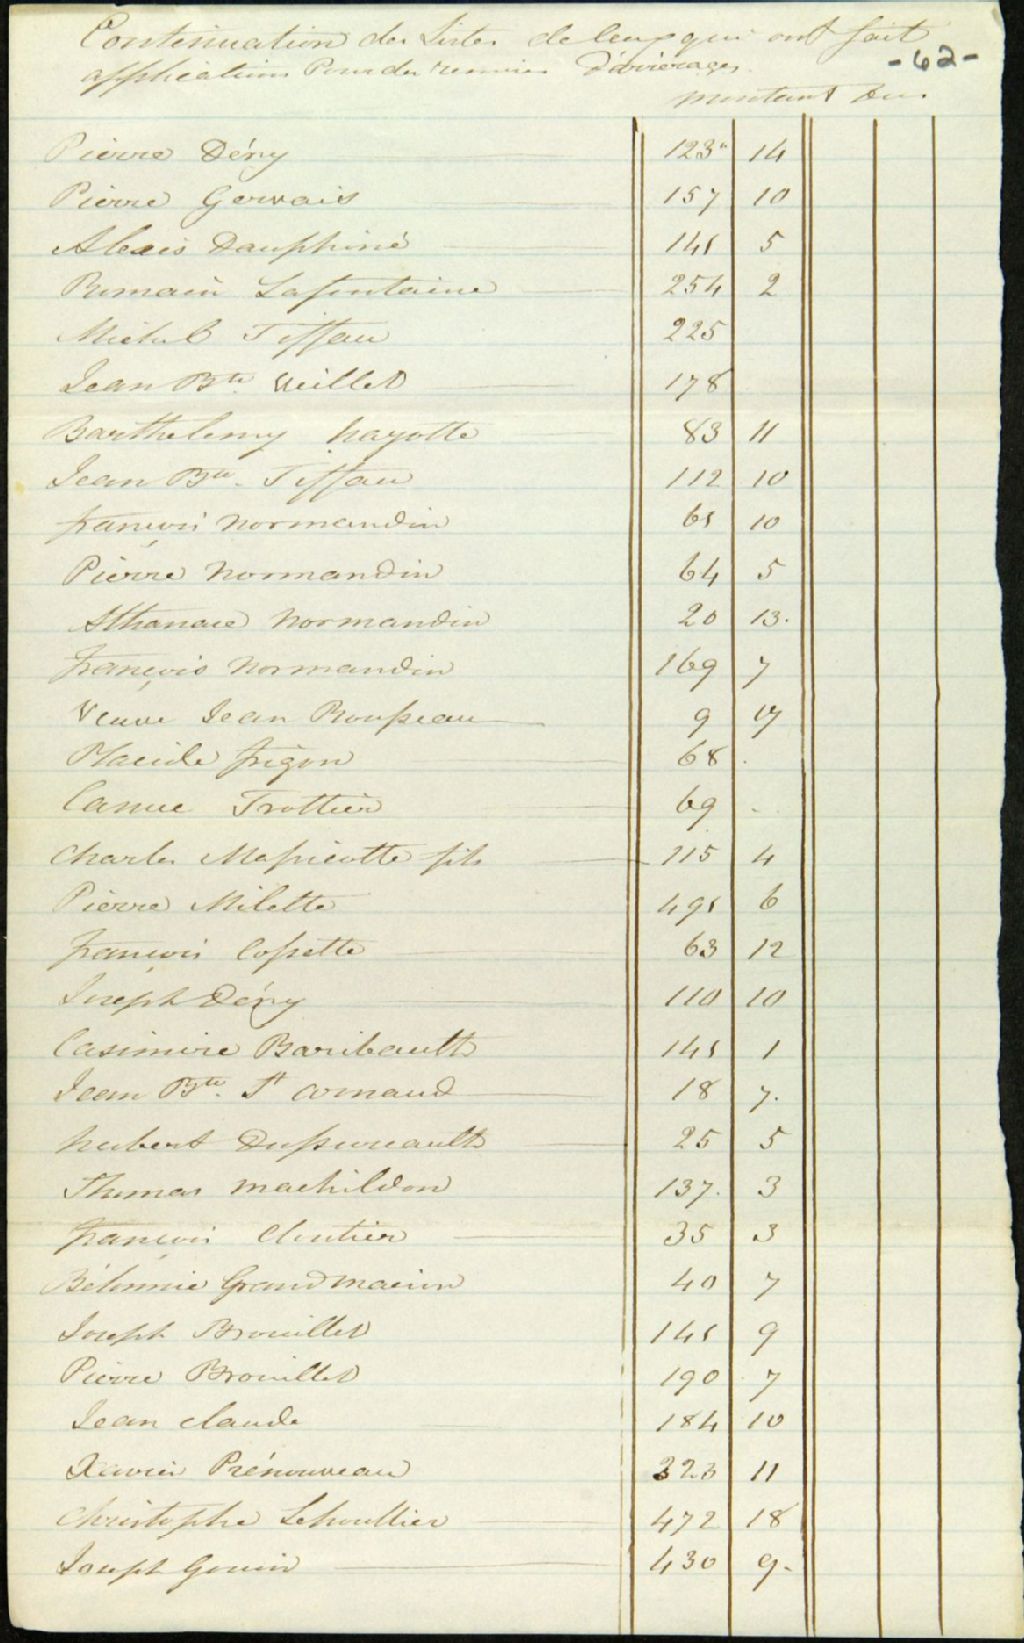 Continuation des Listes de ceux qui ont fait
-62-
application Pour des remises D'arrérages.
montant du.
Pierre Dény 123" 14
Pierre Gervais 157 10
Alexis Dauphiné 141 5
Romain Lafontaine 254 2
Michel Tiffau 225
Jean Bte Veillet 178
Barthelemy hayotte 83 11
Jean Bte. Tiffau 112 10
françois Normandin 61 10
Pierre Normandin 64 5
Athanase Normandin 20 13.
françois Normandin 169 7
Veuve Jean Rousseau 9 17
Placide frigon 68 .
Canue Trottier 69 .
Charles Massicotte fils 115 4
Pierre Milette 491 6
françois Cossette 63 12
Joseph Dény 110 10
Casimire Baribault 141 1
Jean Bte. St arnaud 18 7.
hubert Dessureault 25 5
Thomas machildon 137. 3
françois Cloutier 35 3
Bélonnie Grandmaison 40 7
Joseph Brouillet 141 9
Pierre Brouillet 190 7
Jean Claude 184 10
Xavier Prénouveau 323 11
Christophe Lehoullier 472 18
Joseph Gouin 430 9.